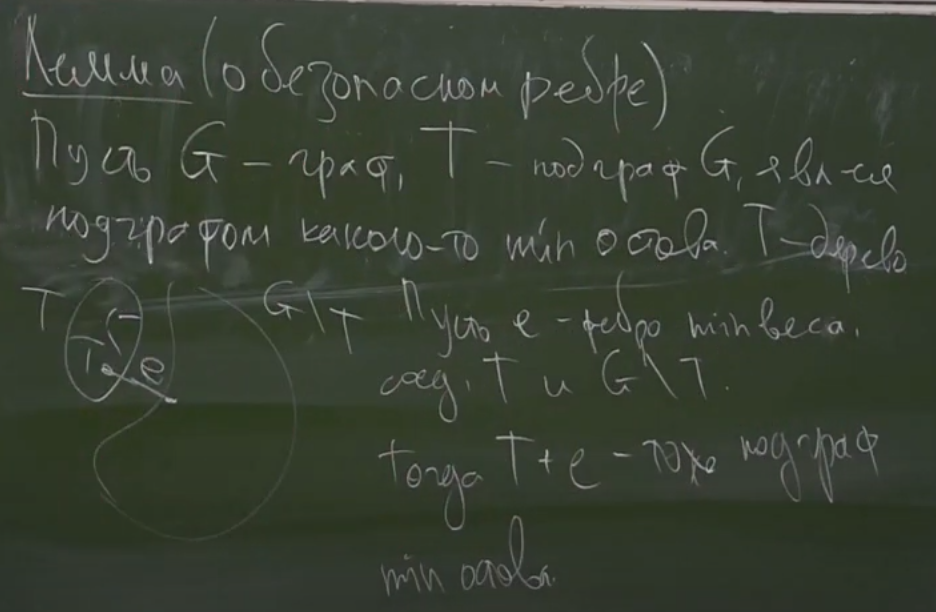 Лемма (о безопасном ребре)
Пусть G – граф, T – подграф G, явл-ся
подграфом какого-то min остова. T – дерево
T e G\T Пусть e – ребро min веса,
соед. T и G\T.
тогда T+e – тоже подграф
min остова.